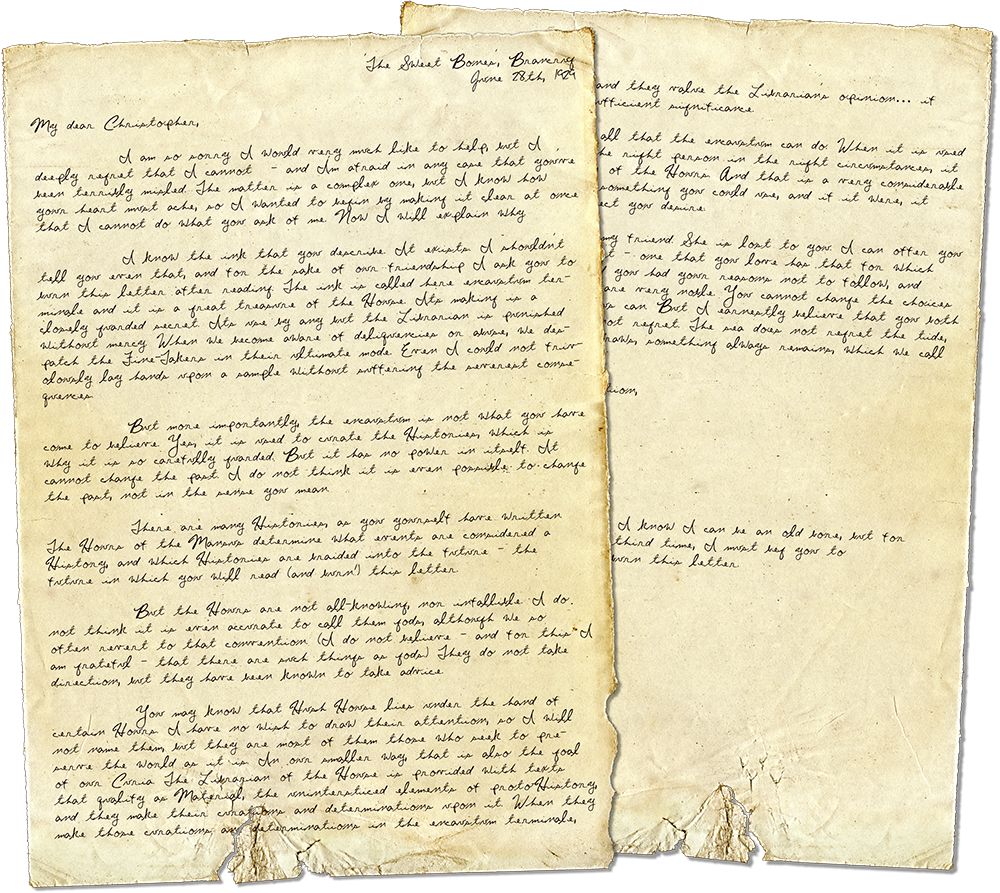 'The Sweet Bones', Brancrug
June 28th, 1929
My dear Christopher,
I am so sorry I would very much like to help, but I
deeply regret that I cannot - and I'm afraid in any case that you've
been terribly misled. The matter is a complex one, but I know how
your heart must ache, so I wanted to begin by making it clear at once
that I cannot do what you ask of me Now I will explain why
I know the ink that you describe It exists I shouldn't
tell you even that, and for the sake of our friendship I ask you to
burn this letter after reading. The ink is called here encaustum ter-
minale and it is a great treasure of the House Its making is a
closely guarded secret Its use by any but the Librarian is punished
without mercy When we become aware of deliquencies or abuse, we des-
patch the Fine-Takers in their ultimate mode. Even I could not friv-
olously lay hands upon a sample without suffering the severest conse-
quences
But more importantly, the encaustum is not what you have
come to believe Yes, it is used to curate the Histories, which is
why it is so carefully guarded. But it has no power in itself. It
cannot change the past. I do not think it is even possible to change
the past, not in the sense you mean
There are many Histories, as you yourself have written
The Hours of the Mansus determine what events are considered a
History, and which Histories are braided into the future - the
future in which you will read (and burn!) this letter
But the Hours are not all-knowing, nor infallible I do
not think it is even accurate to call them gods, although we so
often revert to that convention (I do not believe - and for this I
am grateful - that there are such things as gods) They do not take
direction, but they have been known to take advice
You may know that Hush House lies under the hand of
certain Hours I have no wish to draw their attention, so I will
not name them, but they are most of them those who seek to pre-
serve the world as it is In our smaller way, that is also the goal
of our Curia The Librarian of the House is provided with texts
that qualify as Material, the uninsterticed elements of proto-History,
and they make their curations and determinations upon it When they
make those curations and determinations in the encaustum terminale,
and they value the Librarians opinion... if
ufficient significance
all that the encaustum can do When it is used
he right person in the right circumstances, it
of the Hours And that is a very considerable
something you could use, and if it were, it
ect you desire
my friend She is lost to you I can offer you
t - one that you love has that for which
you had your reasons not to follow, and
are very noble You cannot change the choices
s can But I earnestly believe that you both
ot regret The sea does not regret the tide,
haws, something always remains, which we call
ion,
I know I can be an old bone, but for
third time, I must beg you to
urn this letter